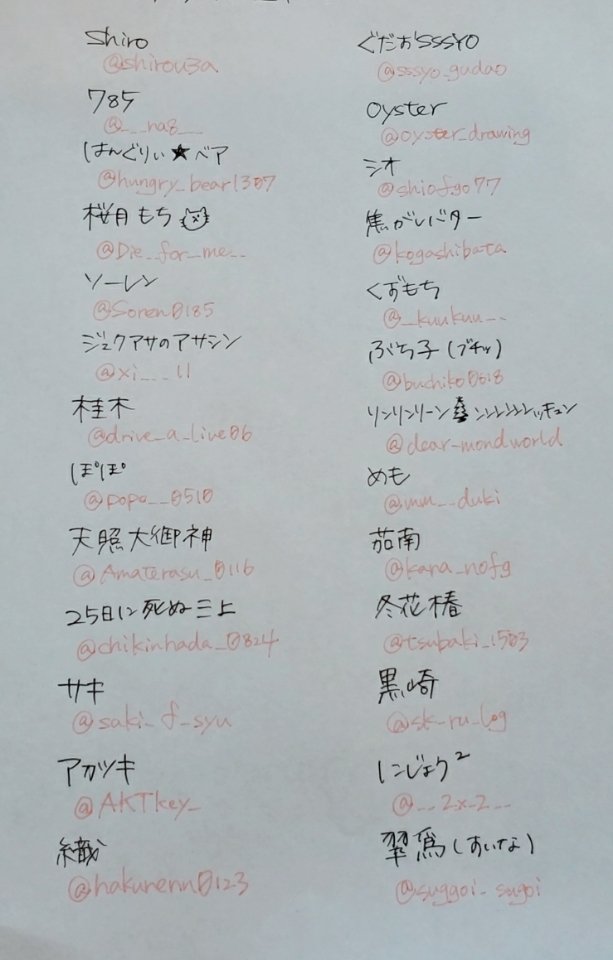 shiro
@shirou3a
785
@___na8___
はんぐりぃ★ベア
@hungry_bear1307
桜月もち
@Die__for_me__
ソーレン
@Soren0185
ジェクアサのアサシン
@xi___11
桂木
@drive_a_live06
ぽぽ
@popo__0510
天照大御神
@Amaterasu_0116
25日に死ぬ三上
@chikinhada_0824
サキ
@saki_f_syu
アカツキ
@AKTkey_
織
@hakurenn0123
ぐだおsssyo
@sssyo_gudao
oyster
@oyster_drawing
シオ
@shiofgo77
焦がしバター
@kogashibata
くずもち
@_kuukuu__
ぶち子(ブチッ)
@buchiko0618
リンリンリーン🎄ンンンンンンレッキュン
@dear_mondworld
めも
@mm__duki
茄南
@kana_nofg
冬花椿
@tsubaki_1503
黒崎
@sk_ru_log
にじぇく²
@__2x_2___
翠爲(すいな)
@suggoi_sugoi